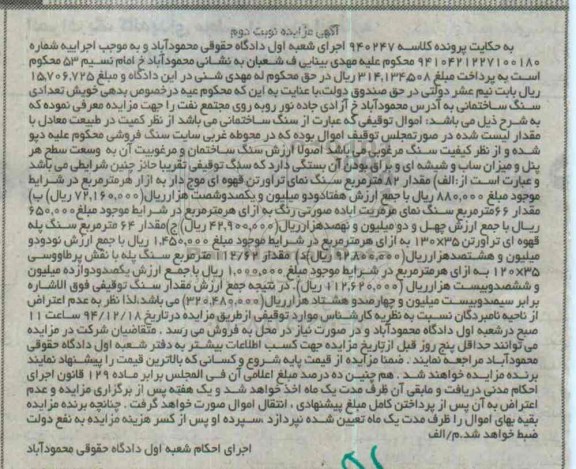 آگهی مزایده نوبت دوم
به حکایت پرونده کلاسه ۹۴۰۲۴۷ اجرای شعبه اول دادگاه حقوقی محمودآباد و به موجب اجراییه شماره
۹۴۱۰۴۲۱۲۲۷۱۰۰۱۸۰ محکوم علیه مهدی بینایی ف شعبان به نشانی محمودآباد خ امام نسیم ۵۳ محکوم
است به پرداخت مبلغ ۳۱۴,۱۳۴,۵۰۸ ریال در حق محکوم له مهدی شنی در این دادگاه و مبلغ ۱۵,۷۰۶,۷۲۵
ریال بابت نیم عشر دولتی در حق صندوق دولت،با عنایت به این که محکوم علیه درخصوص بدهی خویش تعدادی
سنگ ساختمانی به آدرس محمودآباد خ آزادی جاده نور روبه روی مجتمع نفت را جهت مزایده معرفی نموده که
به شرح ذیل می باشد: اموال توقیفی که عبارت از سنگ ساختمانی می باشد از نظر کمیت در طبیعت معادل با
مقدار لیست شده در صورتمجلس توقیف اموال بوده که در محوطه غربی سایت سنگ فروشی محکوم علیه دپو
شده و از نظر کیفیت سنگ مرغوبی می باشد اصولا ارزش سنگ ساختمان و مرغوبیت آن به وسعت سطح هر
پنل و میزان ساب و شیشه ای و براق بودن آن بستگی دارد که سنگ توقیفی تقریبا حائز چنین شرایطی می باشد
و عبارت است از:الف) مقدار ۸۲ مترمربع سنگ نمای تراورتن قهوه ای موج دار به ازار هرمترمربع در شرایط
موجود مبلغ ۸۸۰,۰۰۰ ریال با جمع ارزش هفتادودو میلیون و یکصدوشصت هزارریال(۷۲,۱۶۰,۰۰۰ ریال) ب)
مقدار ۶۶مترمربع سنگ نمای مرمریت آباده صورتی رنگ به ازای هرمترمربع در شرایط موجود مبلغ ۶۵۰,۰۰۰
ریال با جمع ارزش چهل و دو میلیون و نهصدهزارریال(۴۲,۹۰۰,۰۰۰ ریال) ج)مقدار ۶۴ مترمربع سنگ پله
قهوه ای تراورتن ۳۵×۱۳۰ به ازای هرمترمربع در شرایط موجود مبلغ ۱,۴۵۰,۰۰۰ ریال با جمع ارزش نودودو
میلیون و هشتصدهزارریال(۹۲,۸۰۰,۰۰۰ ریال)د) مقدار ۱۱۲/۶۲ مترمربع سنگ پله با نقش پرطاووسی
۳۵×۱۲۰ به ازای هرمترمربع در شرایط موجود مبلغ ۱,۰۰۰,۰۰۰ ریال با جمع ارزش یکصدودوازده میلیون
و ششصدوبیست هزارریال (۱۱۲,۶۲۰,۰۰۰ ریال). در نتیجه جمع ارزش مقدار سنگ توقیفی فوق الاشاره
برابر سیصدوبیست میلیون و چهارصدو هشتاد هزارریال(۳۲۰,۴۸۰,۰۰۰) می باشد،لذا نظر به عدم اعتراض
از ناحیه نامبردگان نسبت به نظریه کارشناس موارد توقیفی از طریق مزایده درتاریخ ۹۴/۱۲/۱۸ ساعت ۱۱
صبح درشعبه اول دادگاه محمودآباد و در صورت نیاز در محل به فروش می رسد . متقاضیان شرکت در مزایده
می توانند حداقل پنج روز قبل ازتاریخ مزایده جهت کسب اطلاعات بیشتر به دفتر شعبه اول دادگاه حقوقی
محمودآباد مراجعه نمایند . ضمنا مزایده از قیمت پایه شروع و کسانی که بالاترین قیمت را پیشنهاد نمایند
برنده مزایده خواهند شد . هم چنین ده درصد مبلغ اعلامی آن فی المجلس برابر ماده ۱۲۹ قانون اجرای
احکام مدنی دریافت و مابقی آن ظرف مدت یک ماه اخذ خواهد شد و یک هفته پس از برگزاری مزایده و عدم
اعتراض به آن پس از پرداختن کامل مبلغ پیشنهادی ، انتقال اموال صورت خواهد گرفت . چنانچه برنده مزایده
بقیه بهای اموال را ظرف مدت یک ماه تعیین شده نپردازد ،سپرده او پس از کسر هزینه مزایده به نفع دولت
ضبط خواهد شد.م/الف
اجرای احکام شعبه اول دادگاه حقوقی محمودآباد